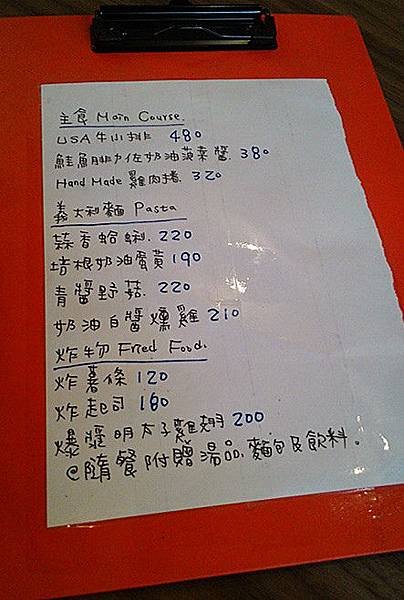 主食 Main Course.
USA 牛小排 480
鮭魚排佐奶油菠菜醬. 380
Hand Made 雞肉捲. 320
義大利麵 Pasta
蒜香蛤蜊. 220
培根奶油蛋黃 190
青醬野菇. 220
奶油白醬燻雞 210
炸物 Fried Food.
炸薯條 120
炸起司 180
爆漿明太子雞翅 200
@隨餐附贈湯品.麵包及飲料。